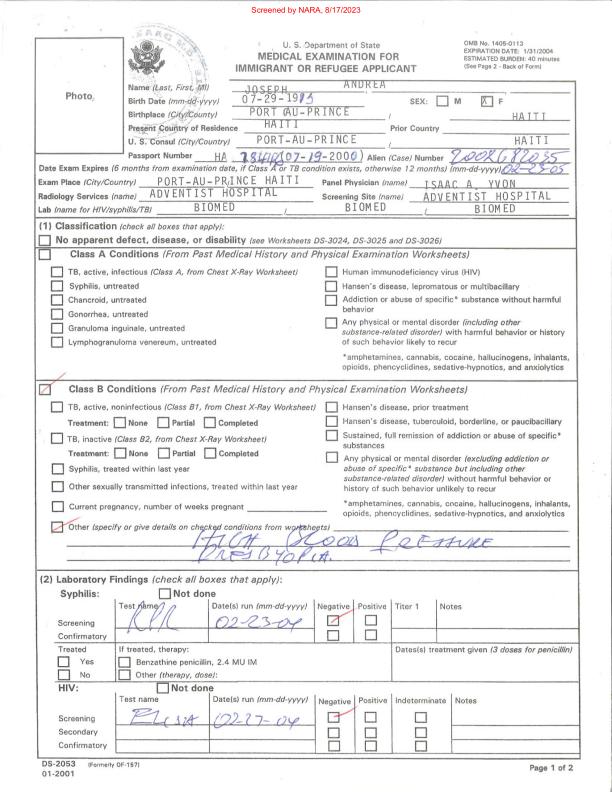 Screened by NARA, 8/17/2023
OMB No. 1405-0113
EXPIRATION DATE: 1/31/2004
ESTIMATED BURDEN: 40 minutes
(See Page 2 - Back of Form)
U. S. Department of State
MEDICAL EXAMINATION FOR
IMMIGRANT OR REFUGEE APPLICANT
Photo
Name (Last, First, MI) JOSEPH , ANDREA ,
Birth Date (mm-dd-yyyy) 07-29-19 SEX: M X F
Birthplace (City/Country) PORT AU-PRINCE / HAITI
Present Country of Residence HAITI Prior Country
U. S. Consul (City/Country) PORT-AU-PRINCE / HAITI
Passport Number HA (07-19-2000) Alien (Case) Number
Date Exam Expires (6 months from examination date, if Class A or TB condition exists, otherwise 12 months) (mm-dd-yyyy) 02-23-05
Exam Place (City/Country) PORT-AU-PRINCE HAITI Panel Physician (name) ISAAC A. YVON
Radiology Services (name) ADVENTIST HOSPITAL Screening Site (name) ADVENTIST HOSPITAL
Lab (name for HIV/syphilis/TB) BIOMED / BIOMED / BIOMED
(1) Classification (check all boxes that apply):
No apparent defect, disease, or disability (see Worksheets DS-3024, DS-3025 and DS-3026)
Class A Conditions (From Past Medical History and Physical Examination Worksheets)
TB, active, infectious (Class A, from Chest X-Ray Worksheet)
Syphilis, untreated
Chancroid, untreated
Gonorrhea, untreated
Granuloma inguinale, untreated
Lymphogranuloma venereum, untreated
Human immunodeficiency virus (HIV)
Hansen's disease, lepromatous or multibacillary
Addiction or abuse of specific* substance without harmful
behavior
Any physical or mental disorder (including other
substance-related disorder) with harmful behavior or history
of such behavior likely to recur
*amphetamines, cannabis, cocaine, hallucinogens, inhalants,
opioids, phencyclidines, sedative-hypnotics, and anxiolytics
Class B Conditions (From Past Medical History and Physical Examination Worksheets)
TB, active, noninfectious (Class B1, from Chest X-Ray Worksheet)
Treatment: None Partial Completed
TB, inactive (Class B2, from Chest X-Ray Worksheet)
Treatment: None Partial Completed
Syphilis, treated within last year
Other sexually transmitted infections, treated within last year
Current pregnancy, number of weeks pregnant
Hansen's disease, prior treatment
Hansen's disease, tuberculoid, borderline, or paucibacillary
Sustained, full remission of addiction or abuse of specific*
substances
Any physical or mental disorder (excluding addiction or
abuse of specific* substance but including other
substance-related disorder) without harmful behavior or
history of such behavior unlikely to recur
*amphetamines, cannabis, cocaine, hallucinogens, inhalants,
opioids, phencyclidines, sedative-hypnotics, and anxiolytics
Other (specify or give details on checked conditions from worksheets)
HIGH BLOOD PRESSURE
PRESBYOPIA.
(2) Laboratory Findings (check all boxes that apply):
Syphilis: Not done
Test name Date(s) run (mm-dd-yyyy) Negative Positive Titer 1 Notes
Screening RPR 02-23-04
Confirmatory
Treated If treated, therapy: Dates(s) treatment given (3 doses for penicillin)
Yes Benzathine penicillin, 2.4 MU IM
No Other (therapy, dose):
HIV: Not done
Test name Date(s) run (mm-dd-yyyy) Negative Positive Indeterminate Notes
Screening Elisa 02-27-04
Secondary
Confirmatory
DS-2053 (Formerly OF-157)
01-2001
Page 1 of 2